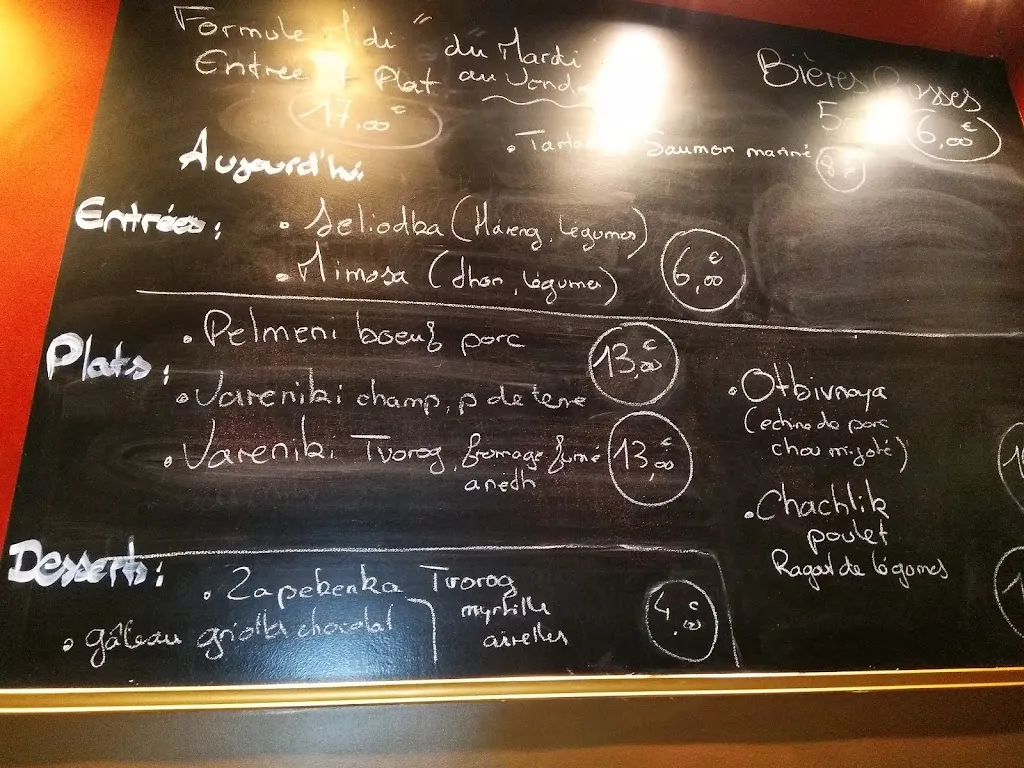 Formule Midi " du Mardi
Entrée Plat au
17,00€
Bières Russes
6,00€
Aujourd'hui
• Saumon mariné
Entrées :
• Seliodka (Hareng, légumes)
• Mimosa (thon, légumes)
6,00€
Plats :
• Pelmeni boeuf porc
13,00€
• Vareniki champ, p de terre
• Vareniki Tvorog, fromage fumé
aneth
13,00€
• Otbivnaya
(echine de porc
chou mijoté)
• Chachlik
poulet
Ragout de légumes
Desserts :
• Zapekenka Tvorog
myrtille
airelles
• gâteau griotte chocolat
4,00€